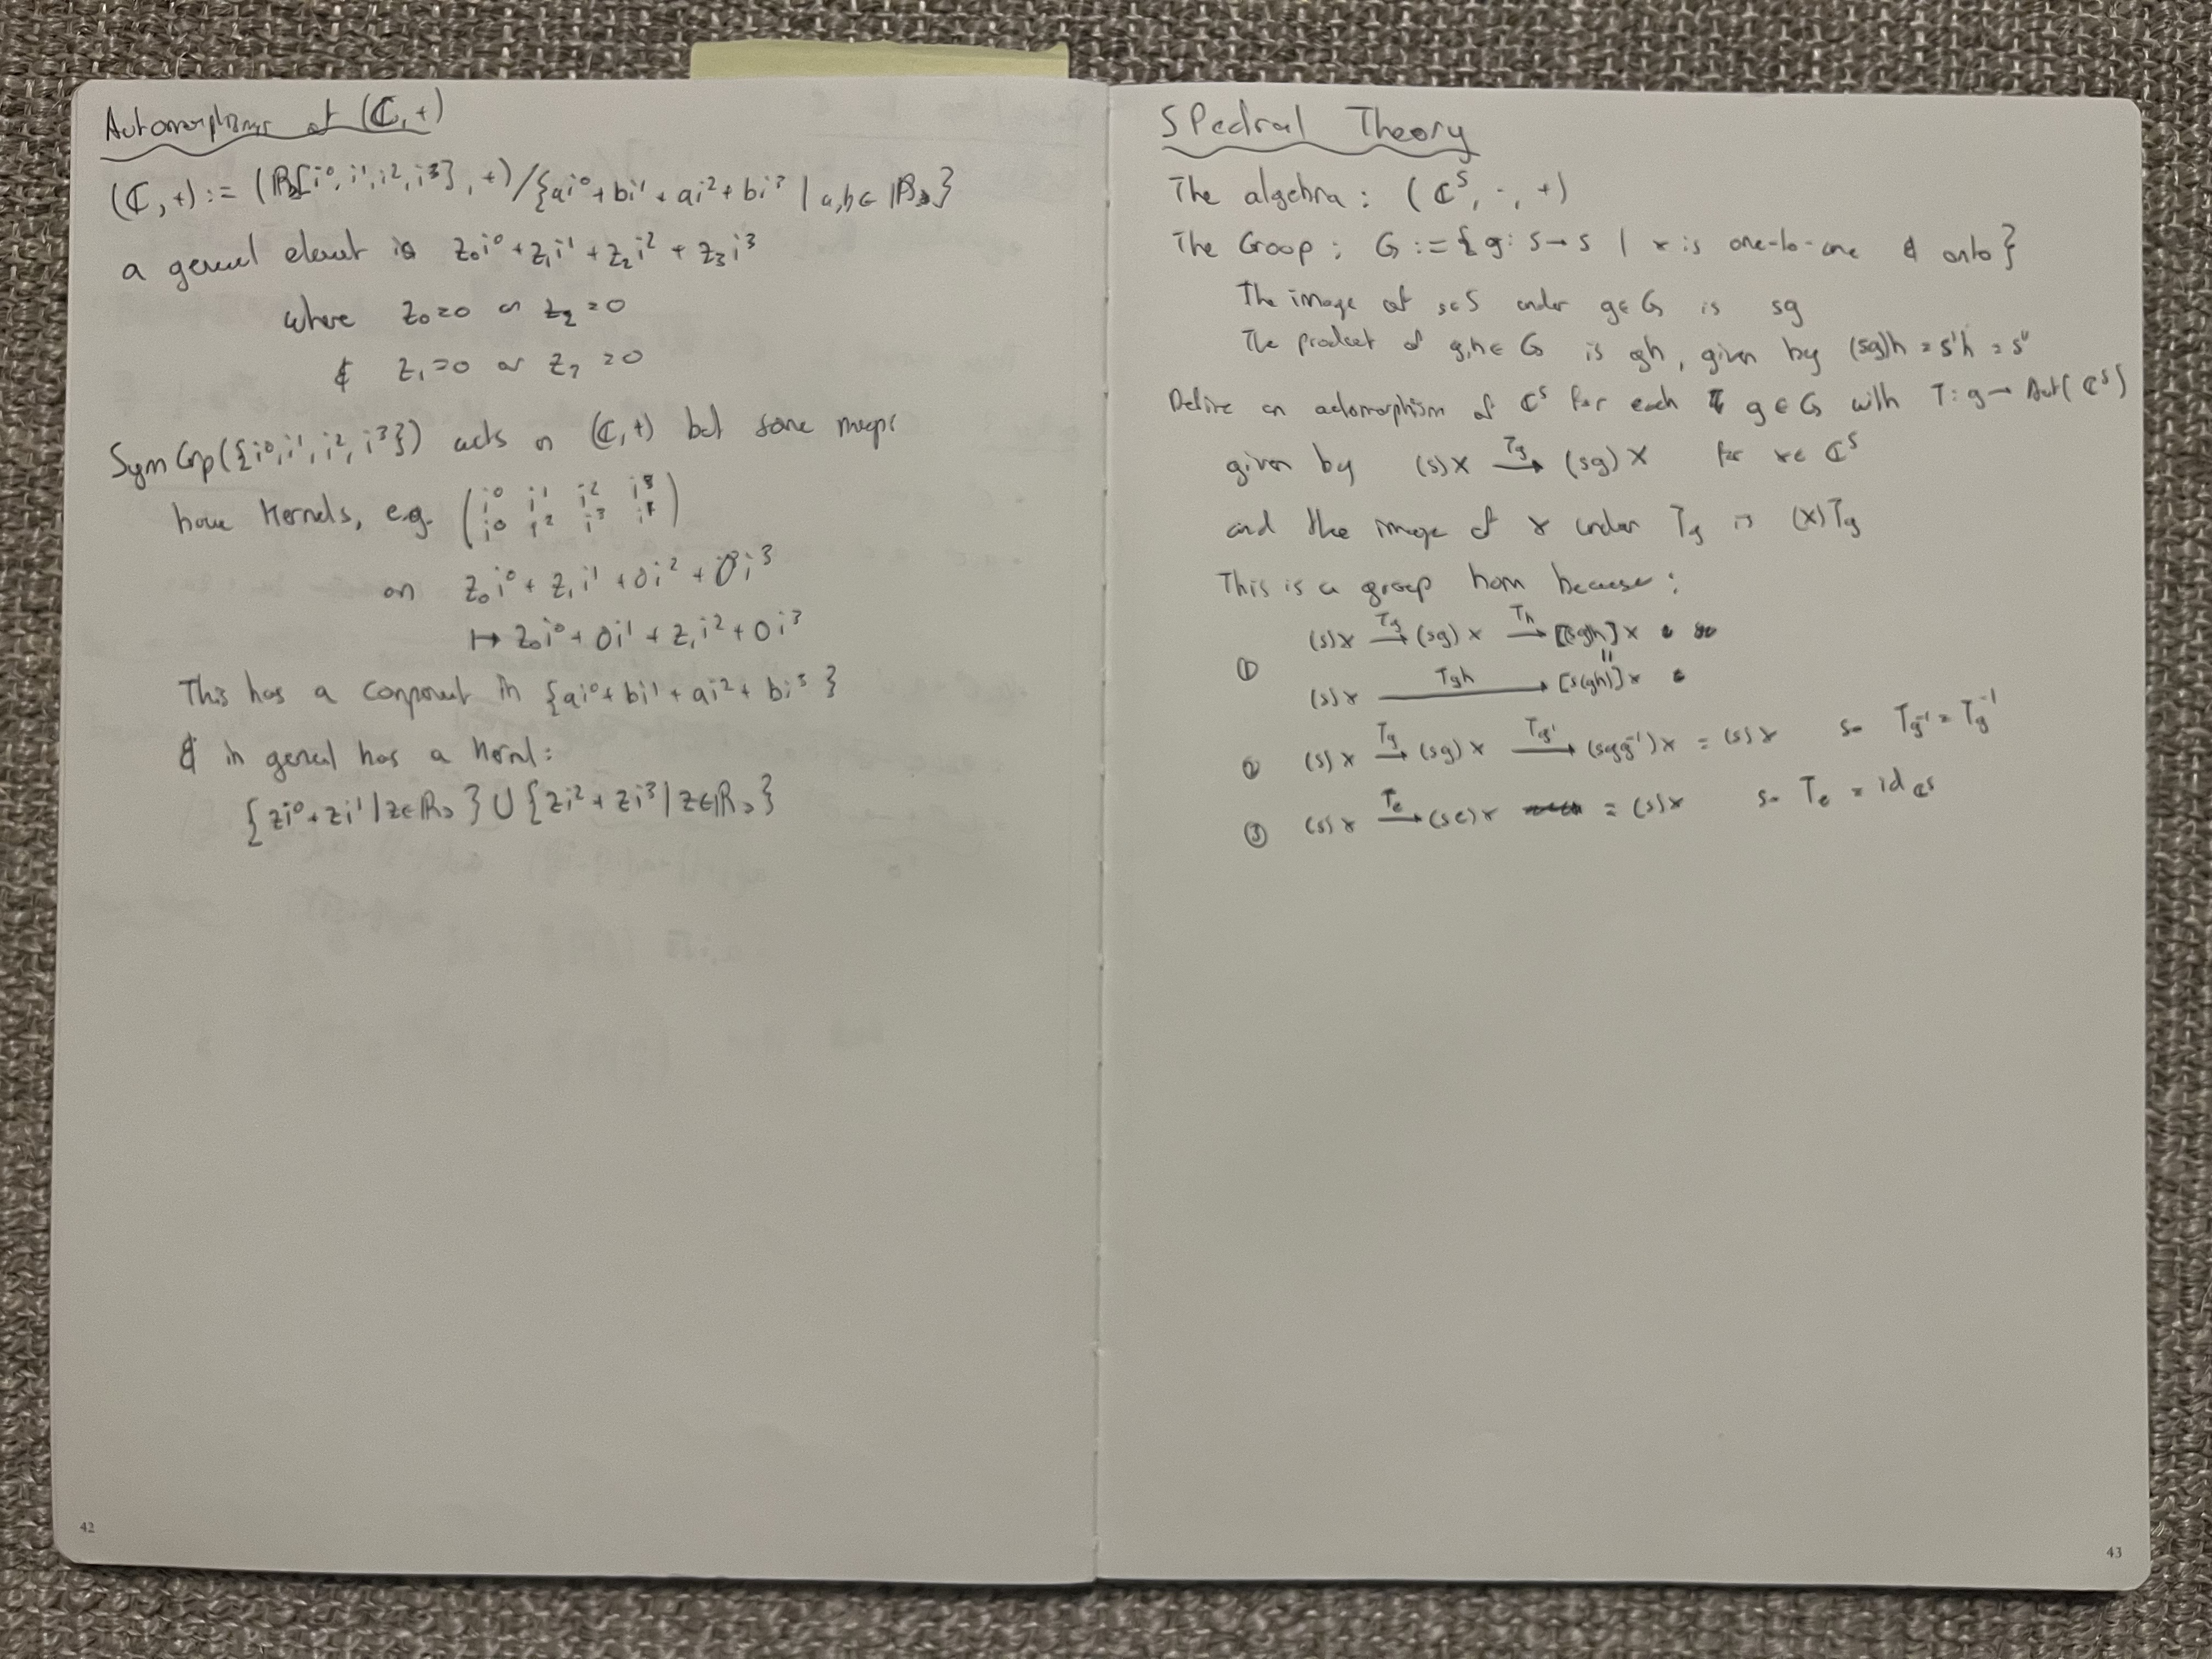 Automorphisms of (ℂ, +)
(ℂ, +) := (ℝ≥[i⁰, i¹, i², i³], +)/{ai⁰ + bi¹ + ai² + bi³ | a,b ∈ ℝ≥}
a general element is z₀i⁰ + z₁i¹ + z₂i² + z₃i³
where z₀=0 or z₂=0
& z₁=0 or z₃=0
SymGrp({i⁰, i¹, i², i³}) acts on (ℂ, +) but some maps
have kernels, e.g. (i⁰ i¹ i² i³
i⁰ i² i³ i¹)
on z₀i⁰ + z₁i¹ + 0i² + 0i³
↦ z₀i⁰ + 0i¹ + z₁i² + 0i³
This has a component in {ai⁰ + bi¹ + ai² + bi³}
& in general has a kernel:
{zi⁰ + zi¹ | z∈ℝ≥} ∪ {zi² + zi³ | z∈ℝ≥}
42
Spectral Theory
The algebra: (ℂˢ, ·, +)
The Group: G := {g: S → S | x is one-to-one & onto}
The image of s∈S under g∈G is sg
The product of g,h ∈ G is gh, given by (sg)h = s'h = s''
Define an automorphism of ℂˢ for each g ∈ G with T: g → Aut(ℂˢ)
given by (s)x —Tg→ (sg)x for x∈ ℂˢ
and the image of x under Tg is (x)Tg
This is a group hom because:
① (s)x —Tg→ (sg)x —Th→ [(sg)h]x
(s)x —Tgh→ [s(gh)]x
② (s)x —Tg→ (sg)x —Tg⁻¹→ (sgg⁻¹)x = (s)x so Tg⁻¹ = Tg⁻¹
③ (s)x —Te→ (se)x = (s)x so Te = id ℂˢ
43